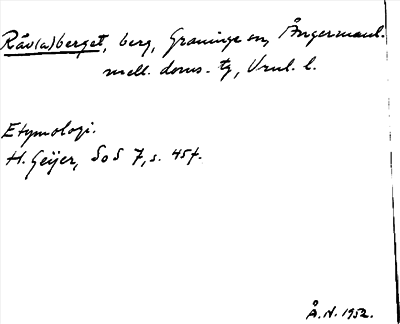 Råv(a)berget, berg, Graninge sn, Ångermanl.
mell. doms. tg, Vnl. l.
Etymologi.
H. Geijer, SoS 7, s. 457.
Å. N. 1952.